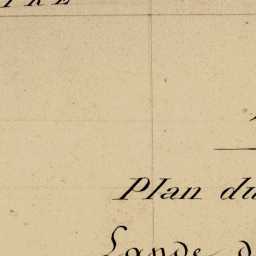 Plan du
Lande d